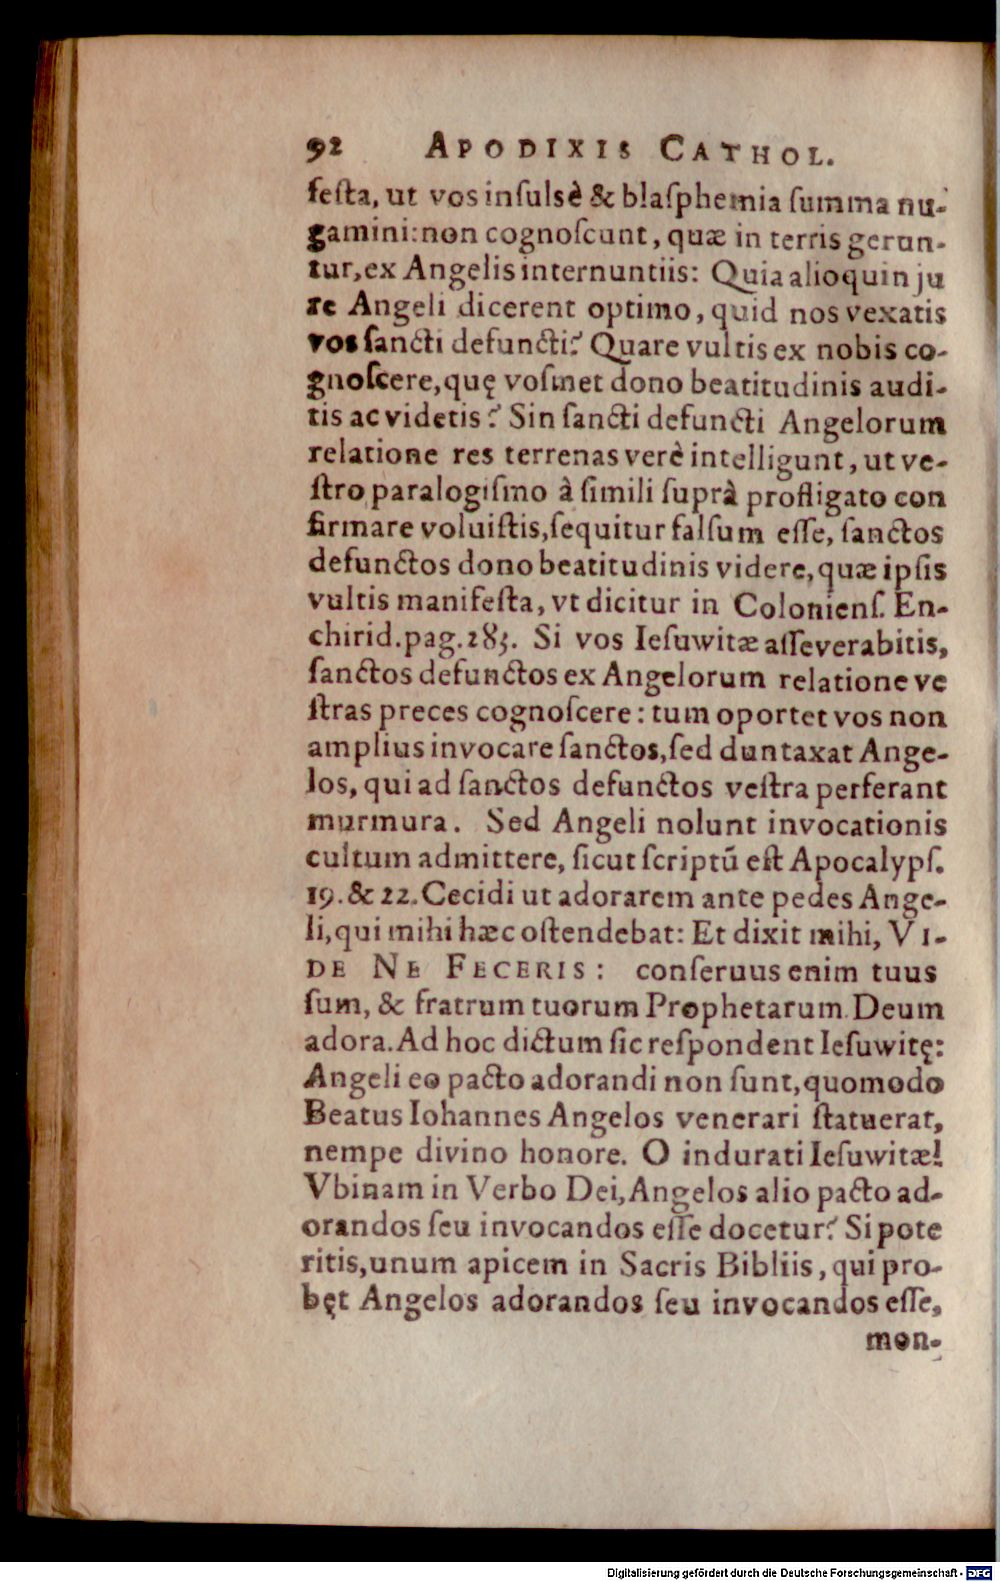 92 APODIXIS CATHOL.
feſta, ut vos inſulsè & blaſphemia ſumma nu-
gamini: non cognoſcunt, quæ in terris gerun-
tur, ex Angelis internuntiis: Quia alioquin ju
re Angeli dicerent optimo, quid nos vexatis
vos ſancti defuncti? Quare vultis ex nobis co-
gnoſcere, quę voſmet dono beatitudinis audi-
tis ac videtis? Sin ſancti defuncti Angelorum
relatione res terrenas verè intelligunt, ut ve-
ſtro paralogiſmo à ſimili ſuprà profligato con
firmare voluiſtis, ſequitur falſum eſſe, ſanctos
defunctos dono beatitudinis videre, quæ ipſis
vultis manifeſta, vt dicitur in Colonienſ. En-
chirid. pag. 283. Si vos Ieſuwitæ aſſeverabitis,
ſanctos defunctos ex Angelorum relatione ve
ſtras preces cognoſcere: tum oportet vos non
amplius invocare ſanctos, ſed duntaxat Ange-
los, qui ad ſanctos defunctos veſtra perferant
murmura. Sed Angeli nolunt invocationis
cultum admittere, ſicut ſcriptũ eſt Apocalypſ.
19. & 22. Cecidi ut adorarem ante pedes Ange-
li, qui mihi hæc oſtendebat: Et dixit mihi, VI-
DE NE FECERIS: conſeruus enim tuus
ſum, & fratrum tuorum Prophetarum. Deum
adora. Ad hoc dictum ſic reſpondent Ieſuwitę:
Angeli eo pacto adorandi non ſunt, quomodo
Beatus Iohannes Angelos venerari ſtatuerat,
nempe divino honore. O indurati Ieſuwitæ!
Vbinam in Verbo Dei, Angelos alio pacto ad-
orandos ſeu invocandos eſſe docetur? Si pote
ritis, unum apicem in Sacris Bibliis, qui pro-
bęt Angelos adorandos ſeu invocandos eſſe,
mon-
Digitalisierung gefördert durch die Deutsche Forschungsgemeinschaft - DFG